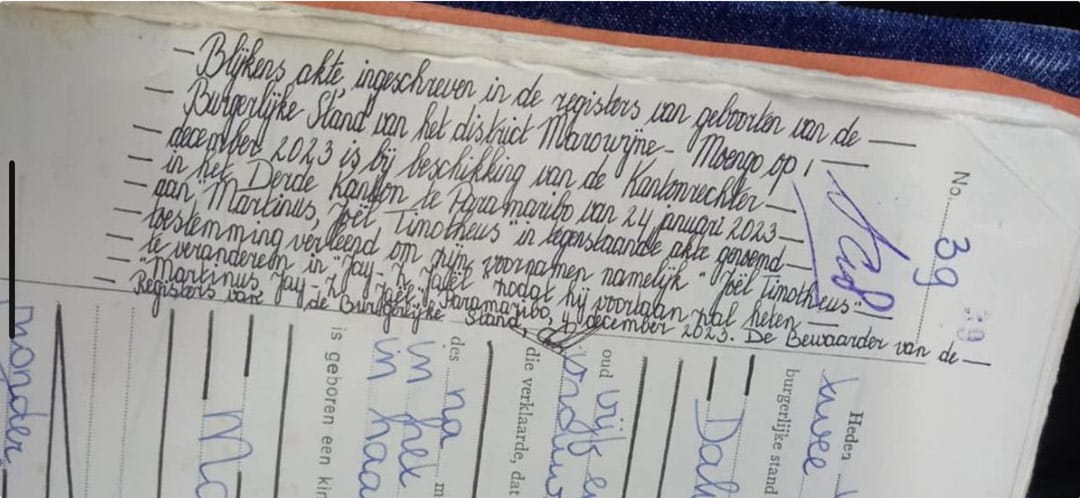 — Blijkens akte, ingeschreven in de registers van geboorten van de —
— Burgerlijke Stand van het district Marowijne - Moengo op 1 —
— december 2023 is bij beschikking van de Kantonrechter —
— in het Derde Kanton te Paramaribo van 24 januari 2023 —
— aan "Martinus, Joël Timotheus" in tegenstaande akte genoemd —
— toestemming verleend om zijne voornamen namelijk "Joël Timotheus" —
— te veranderem in "Jay-Z Jaël" zodat hij voortaan zal heten —
— "Martinus Jay-Z Jaël" Paramaribo, 4 december 2023. De Bewaarder van de —
Registers van de Burgerlijke Stand,
No. 39
39
Heden
twee
burgerlijke stand
Dah
oud vijf en
die verklaarde, dat
des na m
in het
in haa
is geboren een kin
Ma
zonder